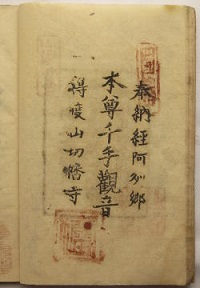 奉納經阿州郷
本尊千手觀音
得度山切幡寺